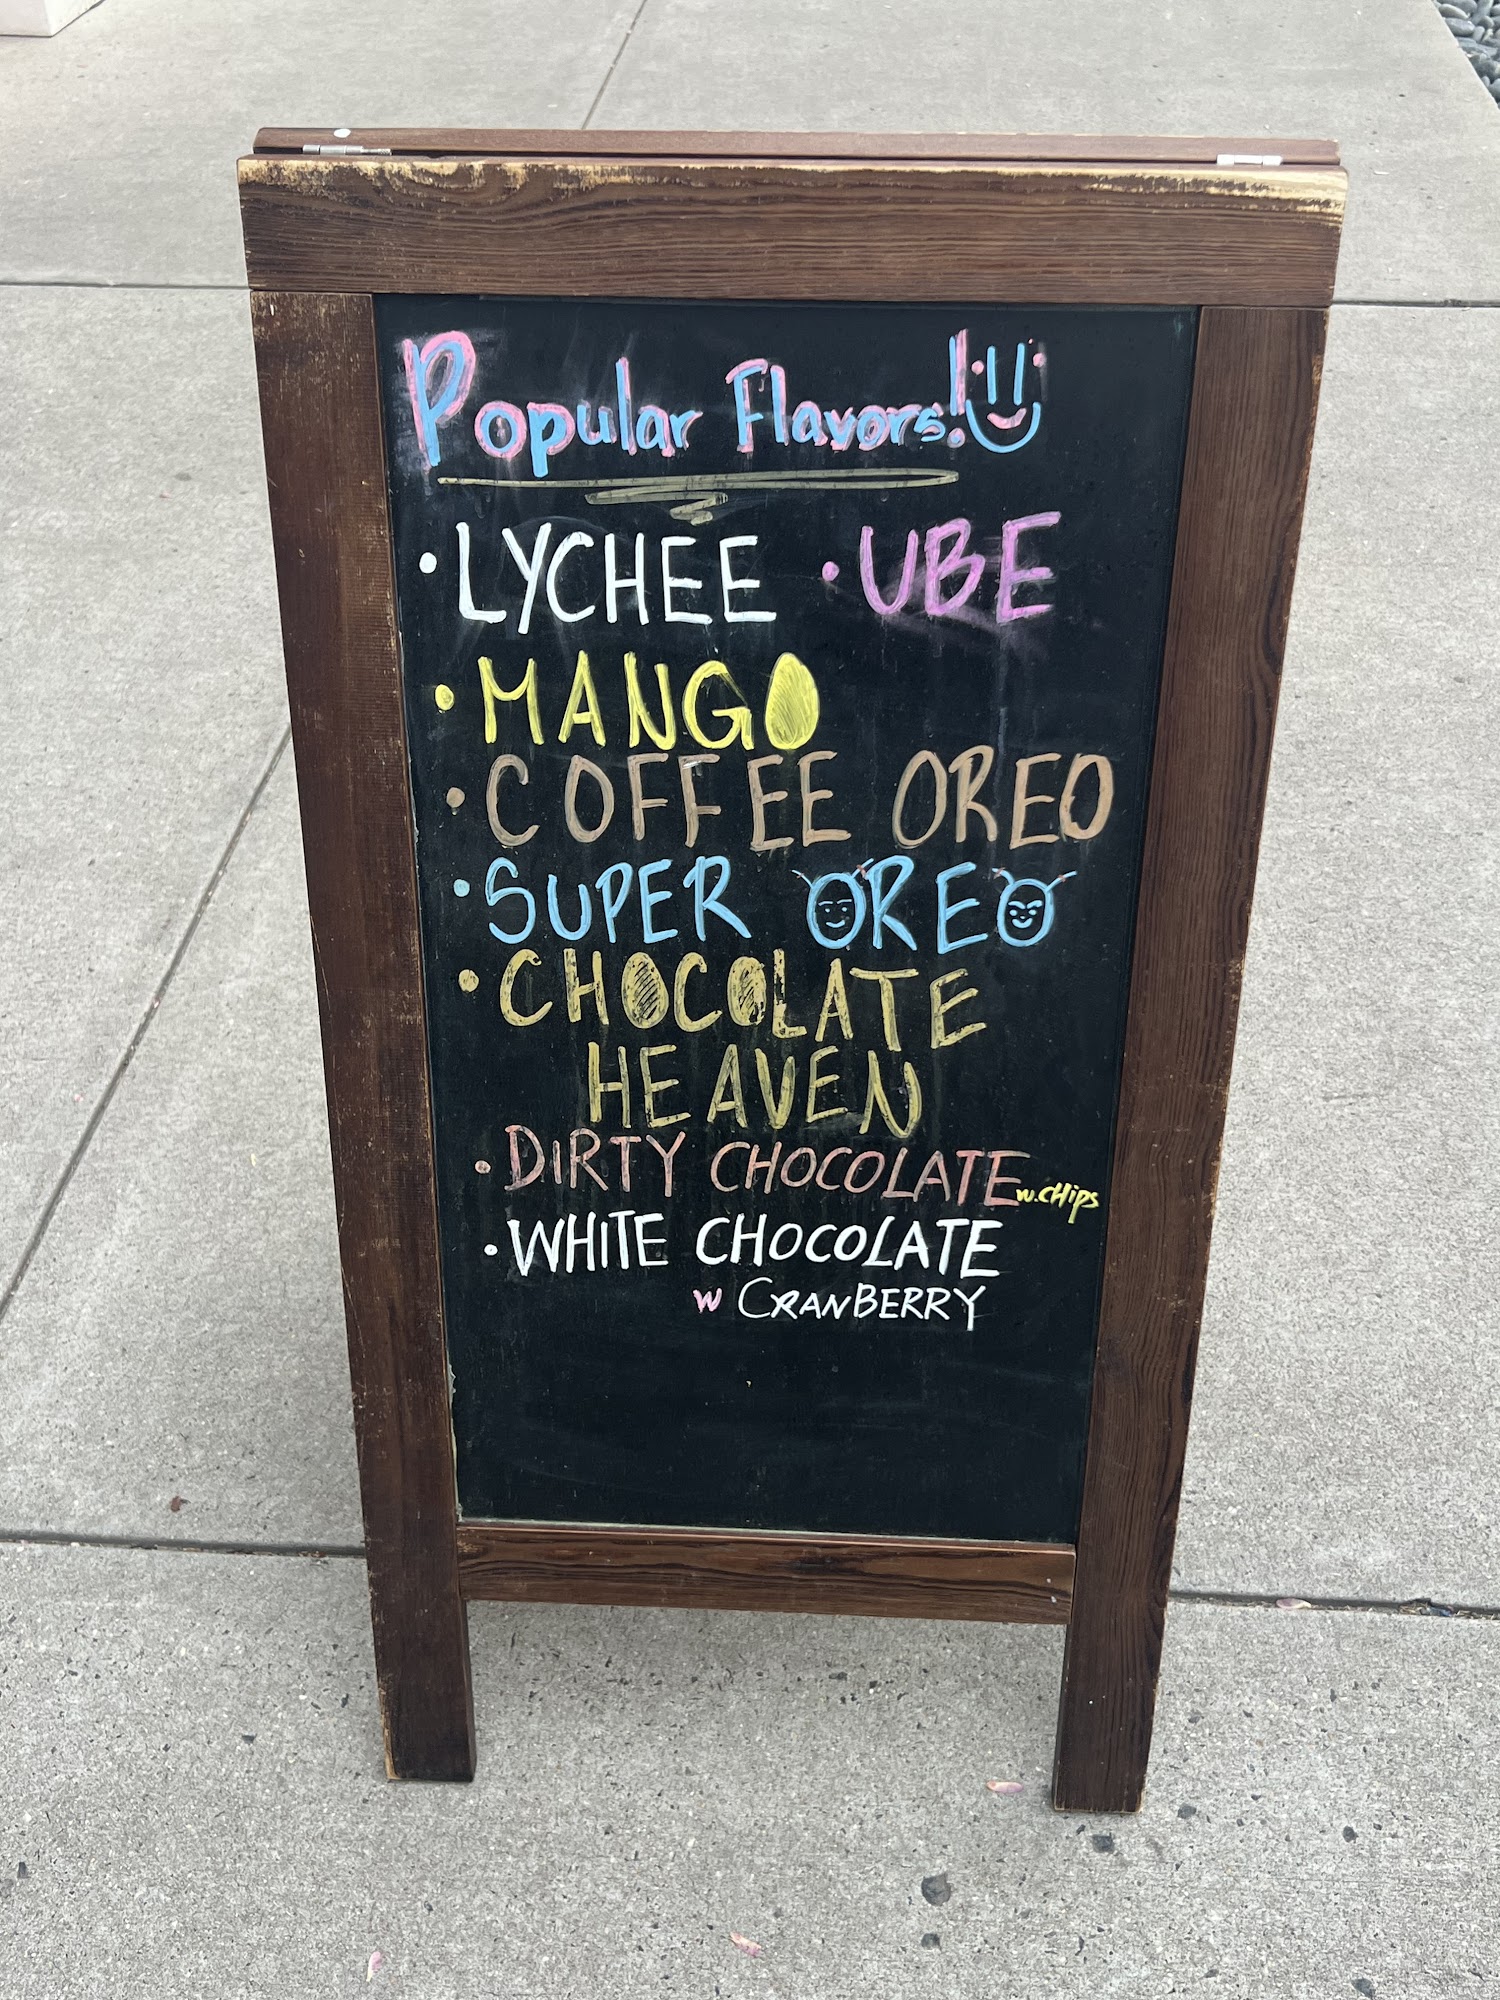 Popular Flavors!
• LYCHEE • UBE
• MANGO
• COFFEE OREO
• SUPER OREO
• CHOCOLATE
HEAVEN
• DIRTY CHOCOLATE w.CHips
• WHITE CHOCOLATE
W CRANBERRY